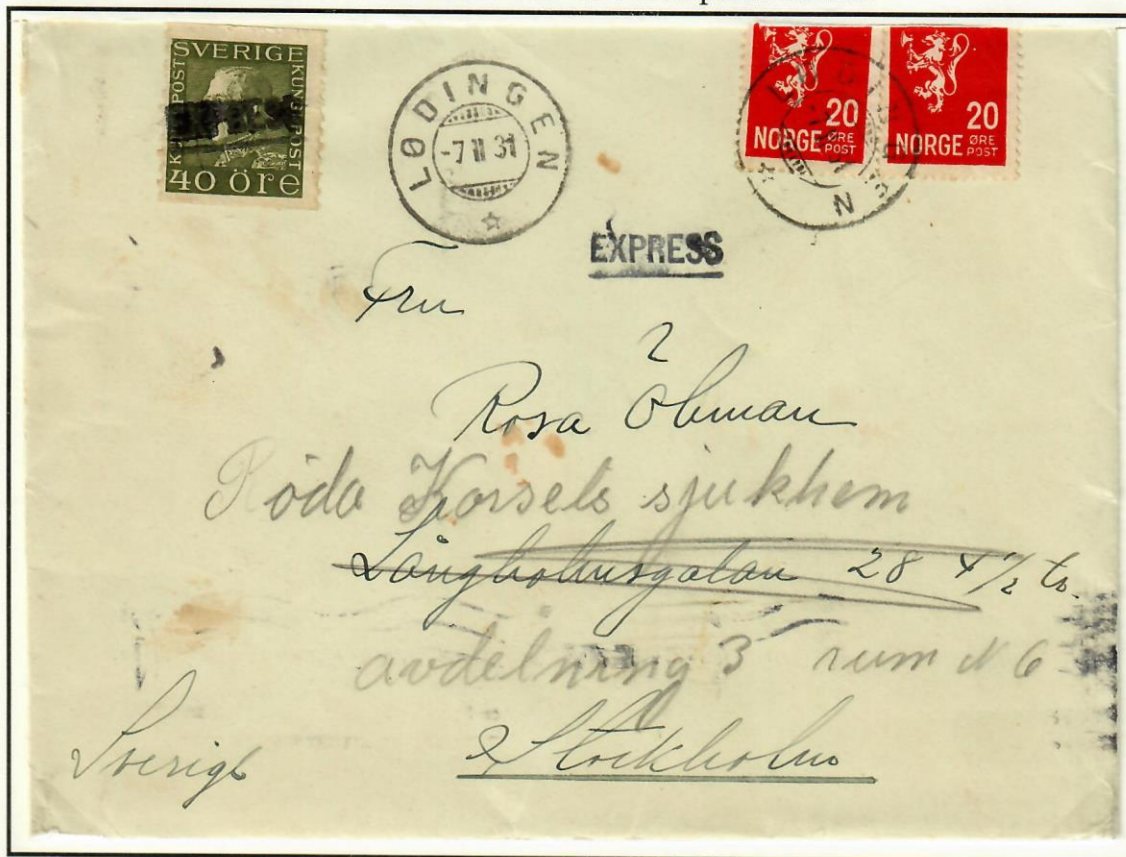 SVERIGE
KUNGL. POST
40 öre
LØDINGEN
-7 II 31
20
NORGE ØRE POST
20
NORGE ØRE POST
EXPRESS
Fru
Rosa Öhman
Röda Korsets sjukhem
Långholmsgatan 28 4 1/2 tr.
avdelning 3 rum N 6
Sverige
Stockholm